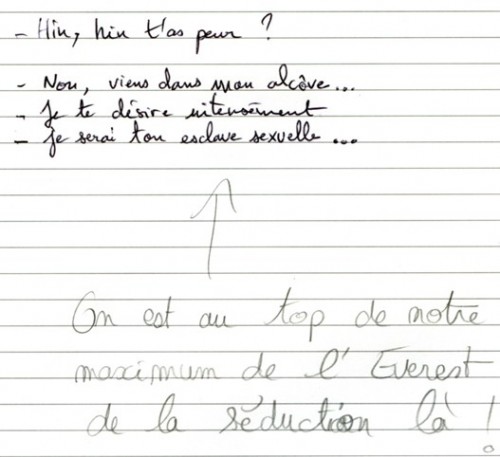 - Hin, hin t'as peur ?
- Non, viens dans mon alcôve...
- Je te désire intensément
- Je serai ton esclave sexuelle ...
On est au top de notre
maximum de l'Everest
de la séduction là !